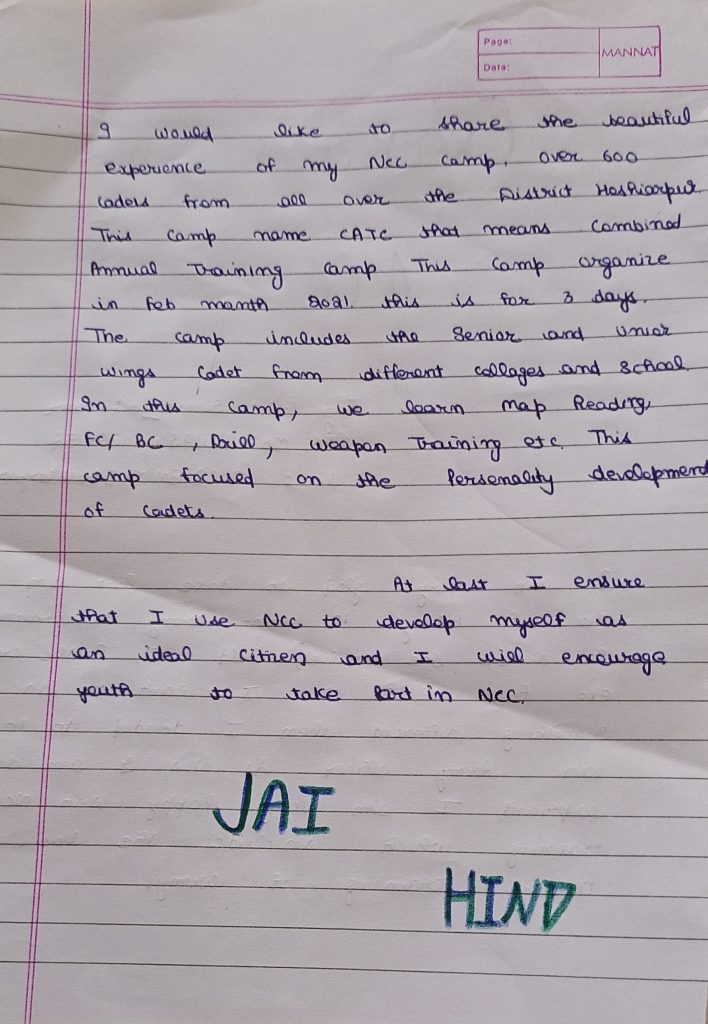 Page:
MANNAT
Date:
I would like to share the beautiful
experience of my Ncc camp, over 600
Cadets from all over the District Hoshiarpur.
This camp name CATC that means Combined
Annual Training Camp This camp organize
in Feb month 2021. this is for 3 days.
The camp includes the Senior and Unior
wings Cadet from different collages and School.
In this camp, we learn map Reading,
FC/ BC , Drill, weapan Training etc. This
camp focused on the Personality development
of Cadets.
At last I ensure
that I use Ncc to develop myself as
an ideal Citizen and I will encourage
youth to take Part in Ncc.
JAI
HIND